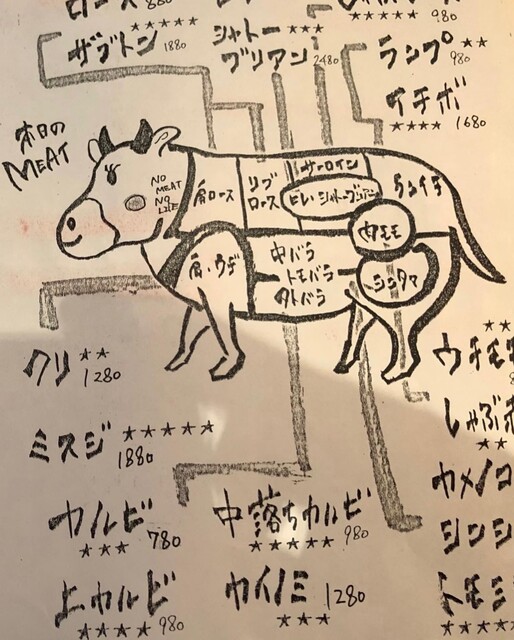 ロース 880
★★★★★ 980
ザブトン 1880
シャトー ★★★
ブリアン 2480
ランプ ★★
980
イチボ
★★★★ 1680
本日の
MEAT
NO
MEAT
NO
LIFE
肩ロース
リブ
ロース
サーロイン
ヒレ・シャトーブリアン
ランイチ
内モモ
肩・ウデ
中バラ
トモバラ
外バラ
シンタマ
クリ ★★
1280
ミスジ ★★★★★
1880
カルビ
★★★ 780
上カルビ
★★★★ 980
中落ちカルビ
★★★★★ 980
カイノミ 1280
★★★
★★
ウチモモ
しゃぶ
★★
カメノコ
シンシ
トモミ
★★★★★